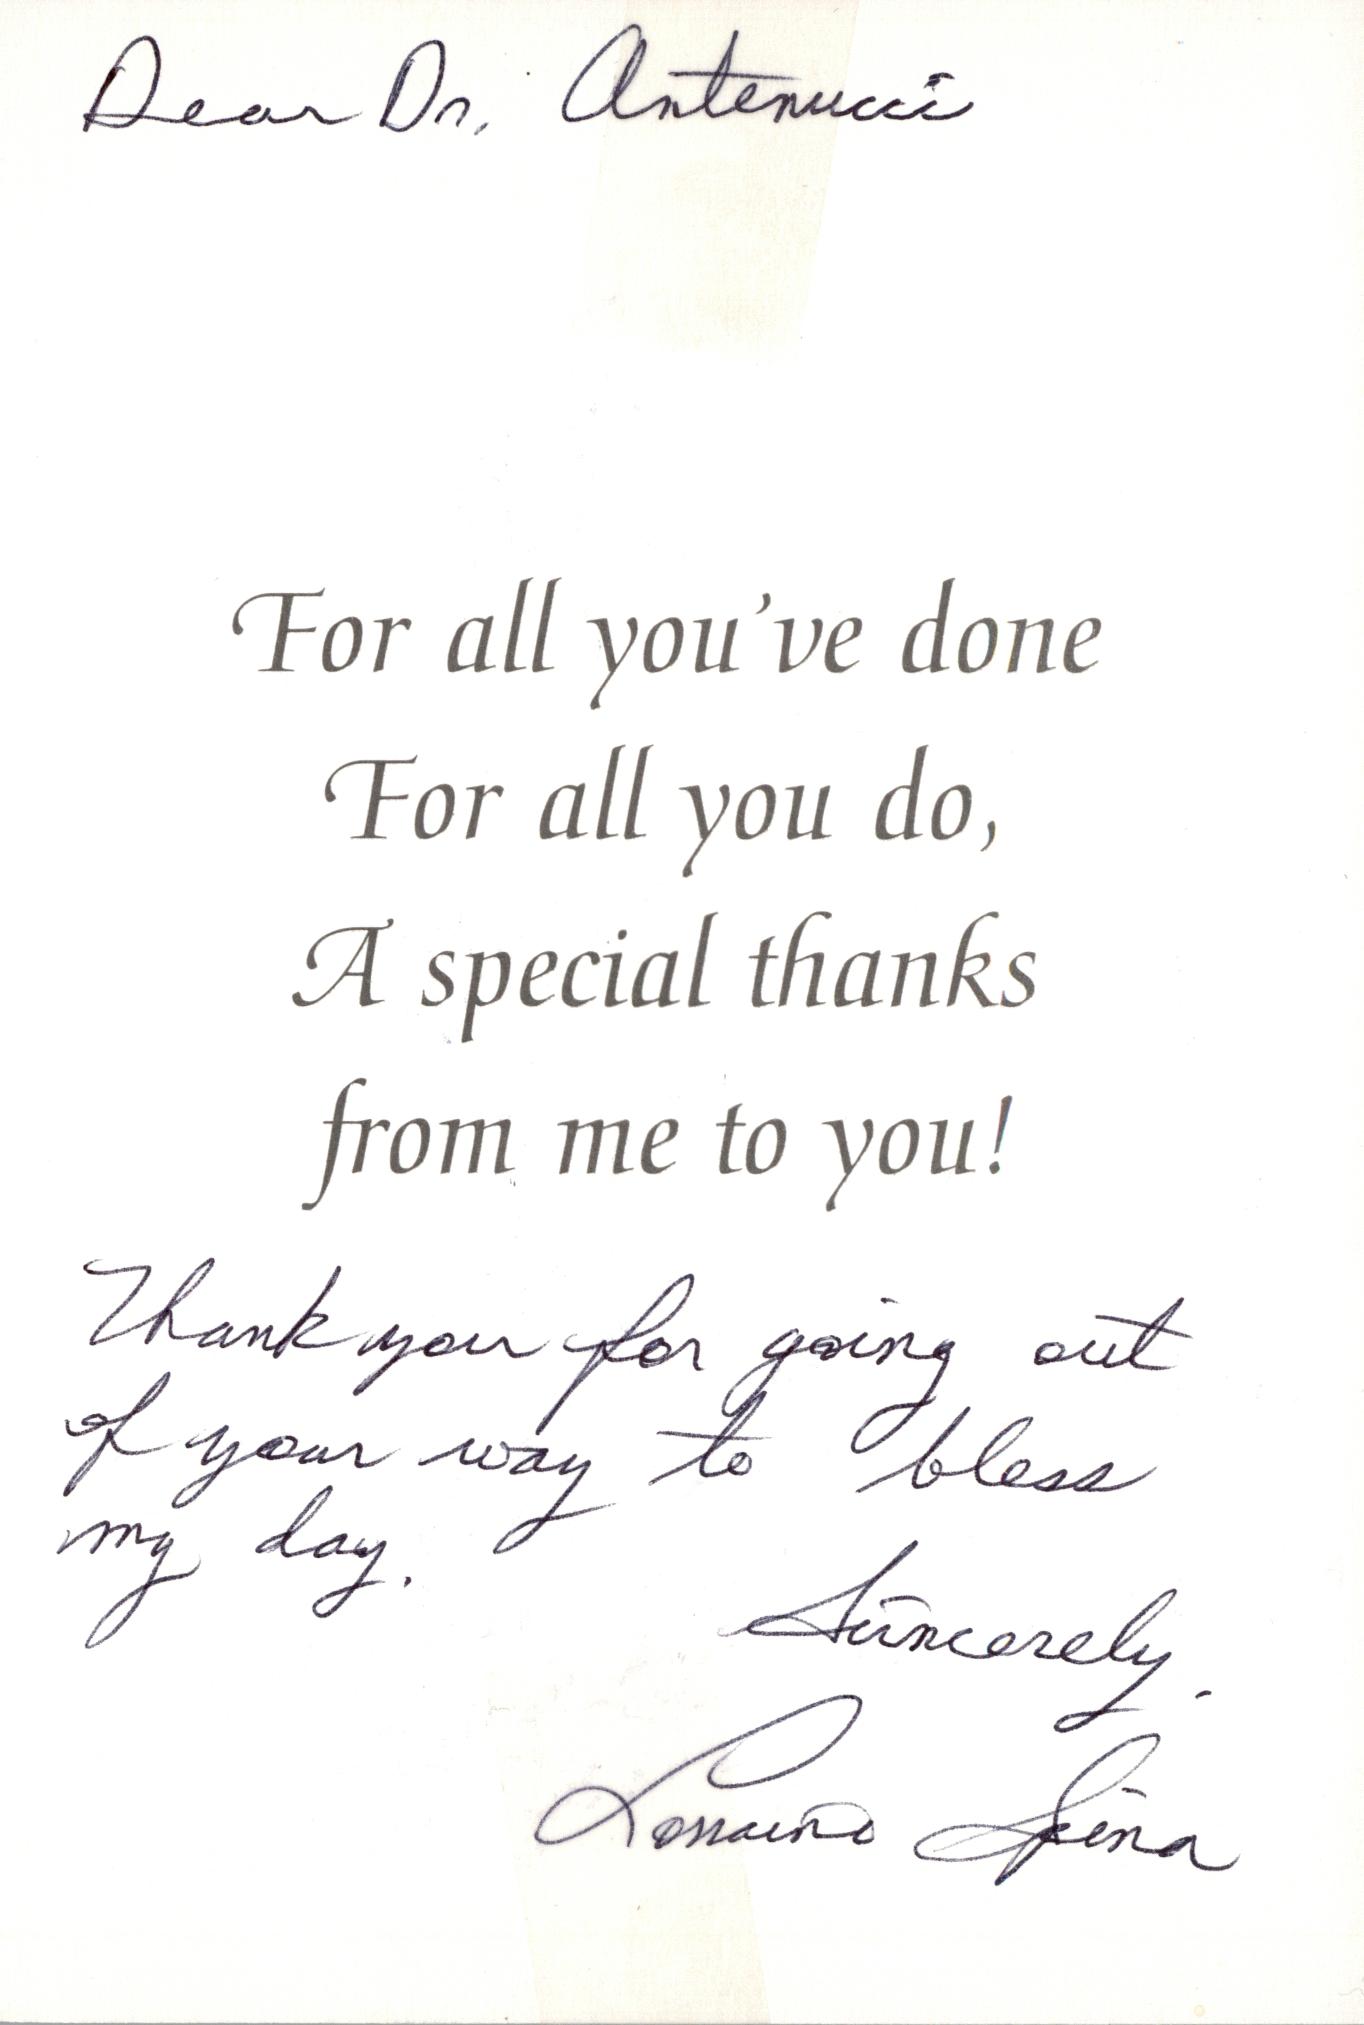 Dear Dr. Antenucci
For all you've done
For all you do,
A special thanks
from me to you!
Thank you for going out
of your way to bless
my day.
Sincerely.
Lorraine Spina